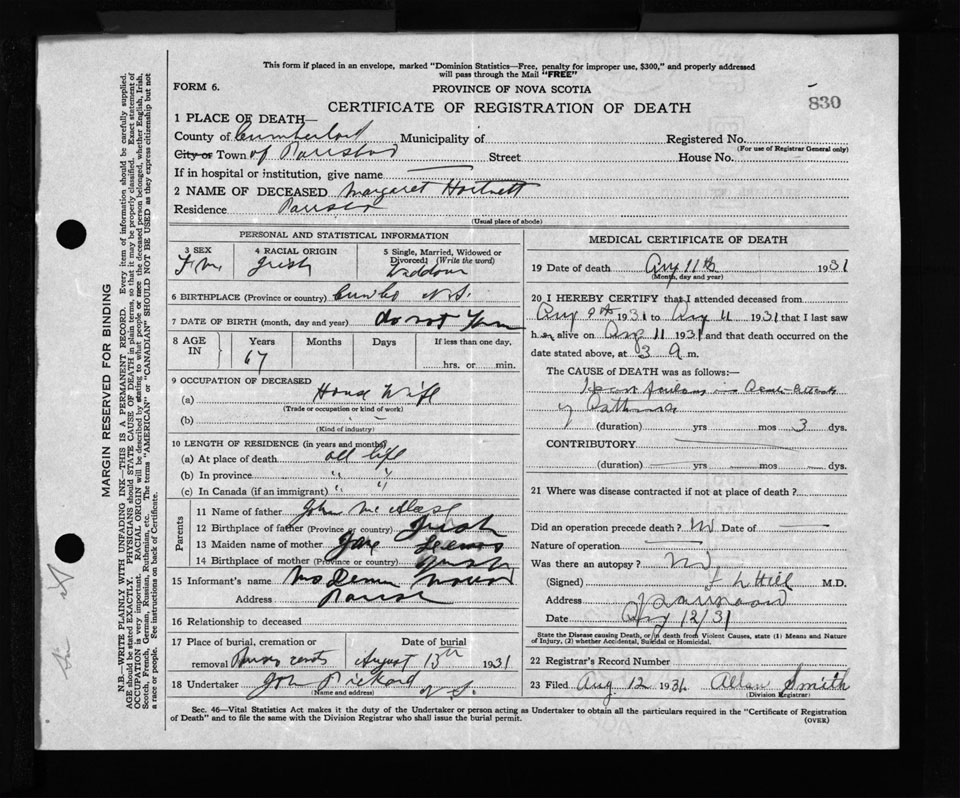 This form if placed in an envelope, marked "Dominion Statistics—Free, penalty for improper use, $300," and properly addressed
will pass through the Mail "FREE"
FORM 6.
PROVINCE OF NOVA SCOTIA
830
CERTIFICATE OF REGISTRATION OF DEATH
1 PLACE OF DEATH—
County of Cumberland Municipality of Registered No.
(For use of Registrar General only)
City or Town of Street House No.
If in hospital or institution, give name
2 NAME OF DECEASED Margaret Hartnett
Residence
(Usual place of abode)
PERSONAL AND STATISTICAL INFORMATION
3 SEX 4 RACIAL ORIGIN 5 Single, Married, Widowed or
Divorced? (Write the word)
Irish
6 BIRTHPLACE (Province or country) N.S.
7 DATE OF BIRTH (month, day and year) do not Know
8 AGE IN Years Months Days If less than one day,
67 hrs. or min.
9 OCCUPATION OF DECEASED
(a) House Wife
(Trade or occupation or kind of work)
(b)
(Kind of industry)
10 LENGTH OF RESIDENCE (in years and months)
(a) At place of death all life
(b) In province " "
(c) In Canada (if an immigrant) " "
Parents
11 Name of father John
12 Birthplace of father (Province or country) Irish
13 Maiden name of mother Jane
14 Birthplace of mother (Province or country) Irish
15 Informant's name Mrs
Address
16 Relationship to deceased
17 Place of burial, cremation or Date of burial
removal August 13th 1931
18 Undertaker John Rickard N S
(Name and address)
MEDICAL CERTIFICATE OF DEATH
19 Date of death Aug 11th 1931
(Month, day and year)
20 I HEREBY CERTIFY that I attended deceased from
Aug 9th 1931 to Aug 11 1931 that I last saw
her alive on Aug 11 1931 and that death occurred on the
date stated above, at 3 a m.
The CAUSE of DEATH was as follows:—
Heart
of Asthma
(duration) yrs mos 3 dys.
CONTRIBUTORY
(duration) yrs mos. dys.
21 Where was disease contracted if not at place of death?
Did an operation precede death? No Date of
Nature of operation
Was there an autopsy? No
(Signed) Hill M.D.
Address
Date Aug 12/31
State the Disease causing Death, or in death from Violent Causes, state (1) Means and Nature
of Injury, (2) whether Accidental, Suicidal or Homicidal.
22 Registrar's Record Number
23 Filed Aug 12 1931 Allan Smith
(Division Registrar)
Sec. 46—Vital Statistics Act makes it the duty of the Undertaker or person acting as Undertaker to obtain all the particulars required in the "Certificate of Registration
of Death" and to file the same with the Division Registrar who shall issue the burial permit.
(OVER)
MARGIN RESERVED FOR BINDING
N.B.—WRITE PLAINLY WITH UNFADING INK—THIS IS A PERMANENT RECORD. Every item of information should be carefully supplied.
AGE should be stated EXACTLY. PHYSICIANS should STATE CAUSE OF DEATH in plain terms, so that it may be properly classified. Exact statement of
OCCUPATION is very important. RACIAL ORIGIN will be described by stating to what people or race the deceased person belonged, whether English, Irish,
Scotch, French, German, Russian, Ruthenian, etc. The terms "AMERICAN" or "CANADIAN" SHOULD NOT BE USED as they express citizenship but not
a race or people. See instructions on back of Certificate.